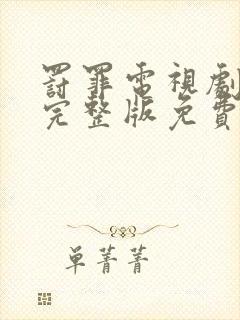 罸罪電視劇
完整版免費
单菁菁